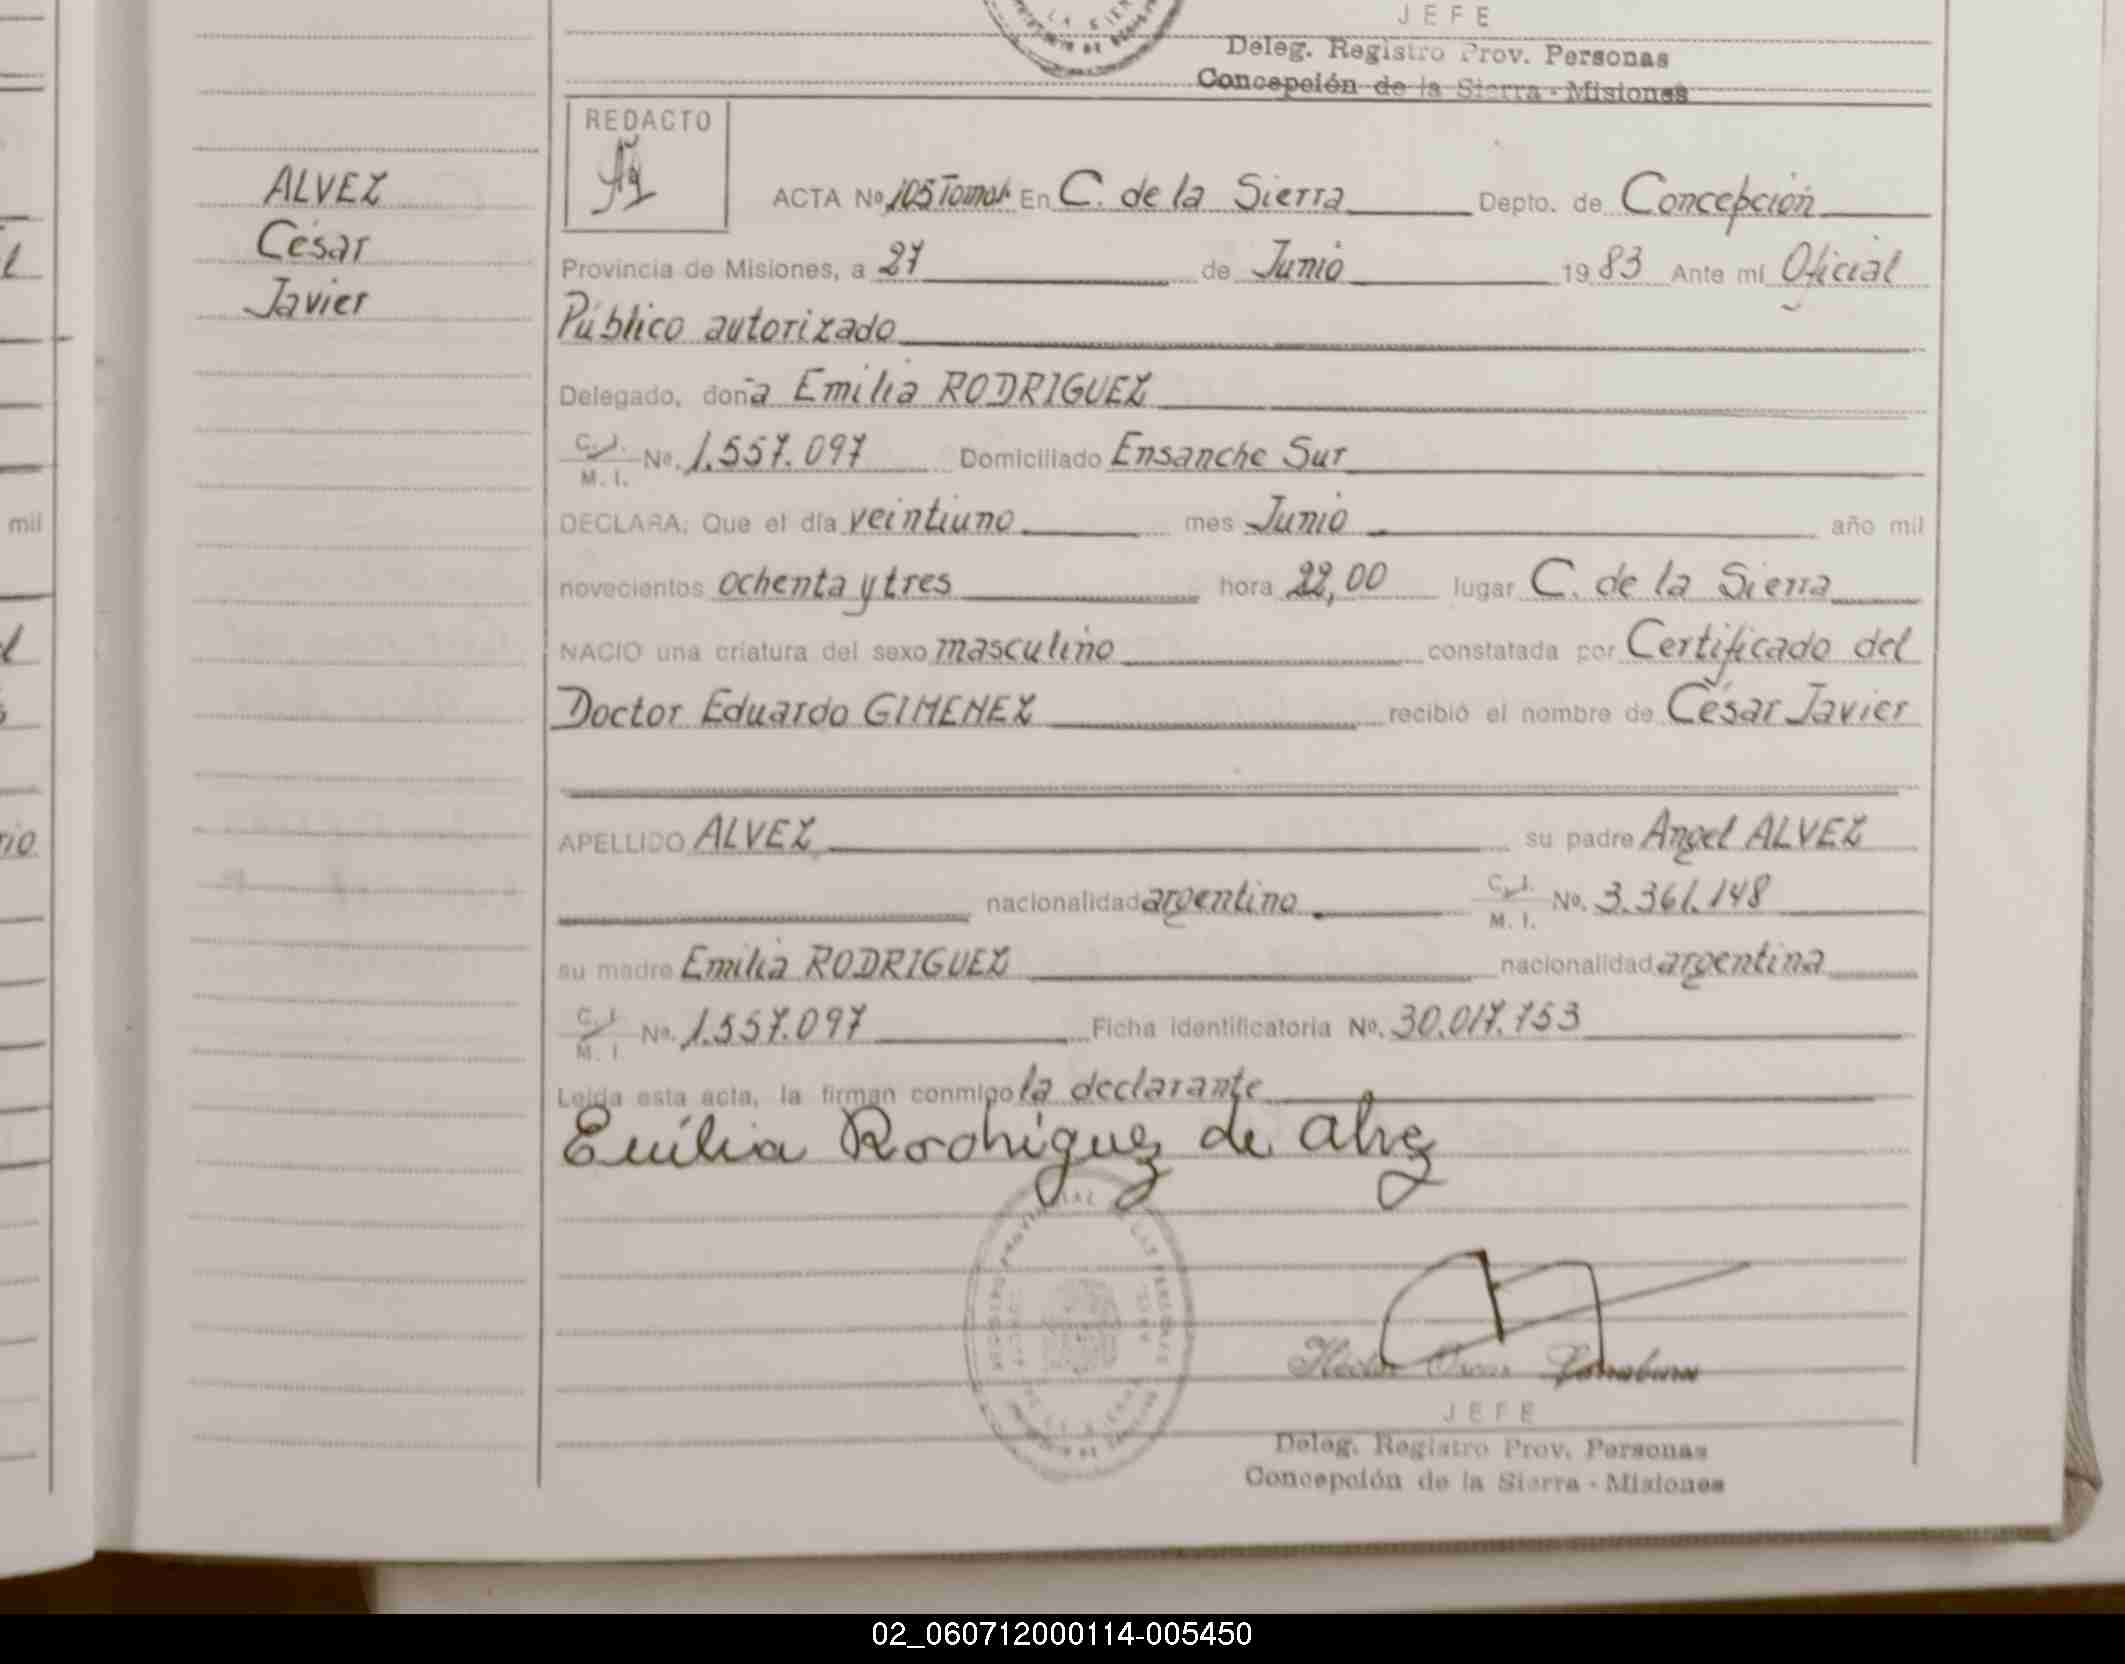 JEFE
Deleg. Registro Prov. Personas
Concepción de la Sierra - Misiones
REDACTO
ALVEZ
César
Javier
ACTA No. 105 Tomo I En C. de la Sierra Depto. de Concepción
Provincia de Misiones, a 27 de Junio 1983 Ante mí Oficial
Público autorizado
Delegado, doña Emilia RODRIGUEZ
C. I. M. I. No. 1.557.097 Domiciliado Ensanche Sur
DECLARA: Que el día veintiuno mes Junio año mil
novecientos ochenta y tres hora 22,00 lugar C. de la Sierra
NACIO una criatura del sexo masculino constatada por Certificado del
Doctor Eduardo GIMENEZ recibió el nombre de César Javier
APELLIDO ALVEZ su padre Angel ALVEZ
nacionalidad argentino C. I. M. I. No. 3.361.148
su madre Emilia RODRIGUEZ nacionalidad argentina
C. I. M. I. No. 1.557.097 Ficha identificatoria No. 30.017.153
Leída esta acta, la firman conmigo la declarante
Emilia Rodriguez de Alvez
Hector Oscar
JEFE
Deleg. Registro Prov. Personas
Concepción de la Sierra - Misiones
mil
02_060712000114-005450